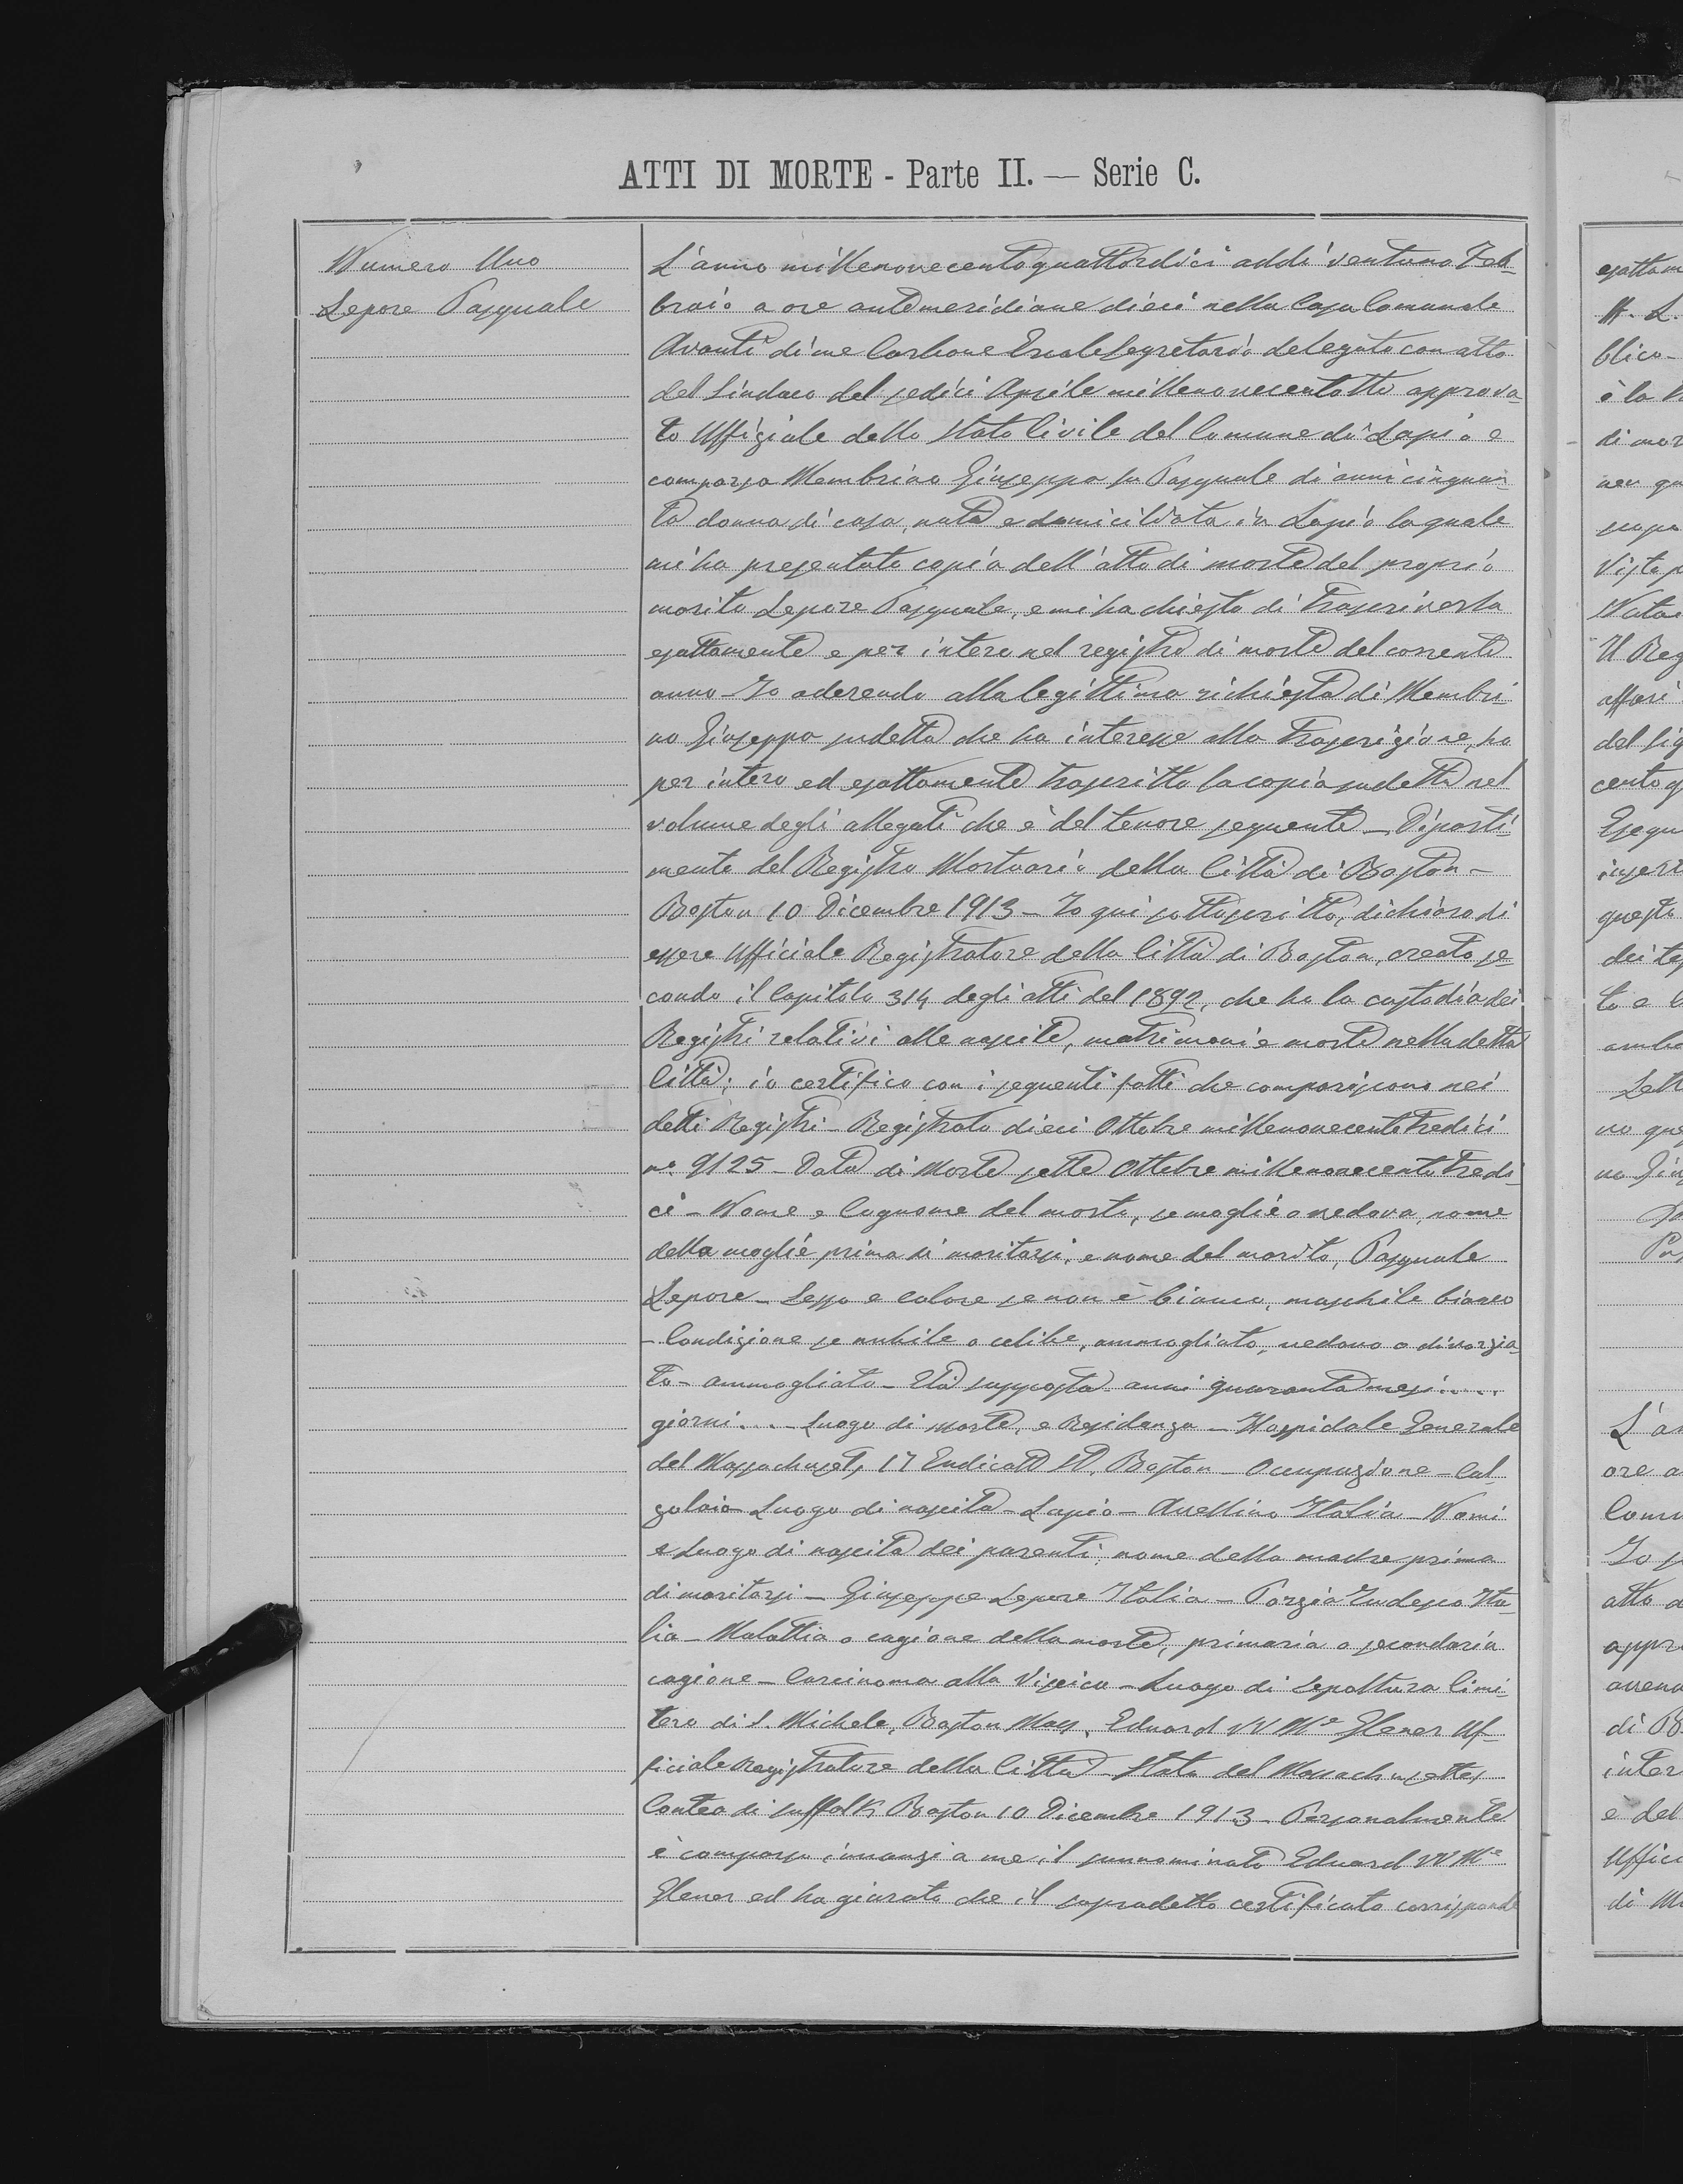 ATTI DI MORTE - Parte II. — Serie C.
Numero Uno
Lepore Pasquale
L'anno millenovecentoquattordici addì ventuno Feb-
braio a ore antimeridiane dieci nella Casa Comunale
Avanti di me Carbone Ercole Segretario delegato con atto
del Sindaco del sedici Aprile millenovecentotto approva-
to Uffiziale dello Stato Civile del Comune di Lapio è
comparsa Membrino Giuseppa fu Pasquale di anni cinquan-
ta donna di casa, nata e domiciliata in Lapio la quale
mi ha presentato copia dell'atto di morte del proprio
marito Lepore Pasquale, e mi ha chiesto di trascriverla
esattamente e per intero nel registro di morte del corrente
anno - Io aderendo alla legittima richiesta di Membri-
no Giuseppa sudetta che ha interesse alla trascrizione, ho
per intero ed esattamente trascritto la copia sudetta nel
volume degli allegati che è del tenore seguente - Diparti-
mento del Registro Mortuario della Città di Boston -
Boston 10 Dicembre 1913 - Io qui sottoscritto, dichiaro di
essere Ufficiale Registratore della Città di Boston, creato se-
condo il Capitolo 314 degli atti del 1892, che ha la custodia dei
Registri relativi alle nascite, matrimoni e morte nella detta
Città; io certifico con i seguenti fatti che compariscono nei
detti Registri - Registrato dieci Ottobre millenovecentotredici
n.o 9125 - Data di Morte sette Ottobre millenovecentotredi-
ci - Nome e Cugnome del morto, se moglie o vedova, nome
della moglie prima di maritarsi, e nome del marito, Pasquale
Lepore - Sesso e colore se non è bianco, maschile bianco
- Condizione se nubile o celibe, ammogliato, vedovo o divorzia-
to - ammogliato - Età supposta anni quaranta mesi ....
giorni .... Luogo di morte, e Residenza - Hospidale Generale
del Massachuset, 17 Endicott St, Boston - Occupazione - Cal-
zolaio Luogo di nascita - Lapio - Avellino Italia - Nomi
e Luogo di nascita dei parenti, nome della madre prima
di maritarsi - Giuseppe Lepore Italia - Porzia Ita-
lia - Malattia o cagione della morte, primaria o secondaria
cagione - Carcinoma alla Viscica - Luogo di Sepoltura Cimi-
tero di S. Michele, Boston Mass. Eduard W Mc Glener Uf-
ficiale Registratore della Città - Stato del Massachusettes
Contea di Suffolk Boston 10 Dicembre 1913 - Personalmente
è comparso innanzi a me il sunnominato Eduard W Mc
Glener ed ha giurato che il sopradetto certificato corrisponde
esattam
blico -
è la
di mor
Vista
Il Reg
affari
del Sig
cento q
Esegu
questo
to e
no que
L'an
ore a
Comu
Io
atto
appro
di B
inter
e del
Uffici
di M